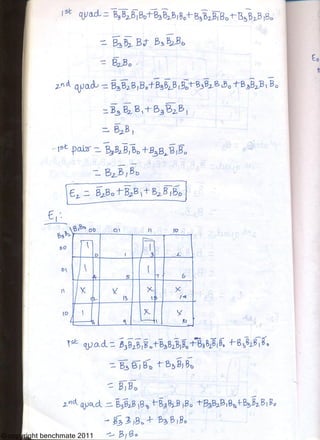 1st quad = B̅₃B̅₂B̅₁B₀ + B̅₃B̅₂B₁B₀ + B₃B̅₂B̅₁B₀ + B₃B̅₂B₁B₀
= B̅₃B̅₂ B₀ + B₃B̅₂B₀
= B̅₂B₀.
2nd quad = B̅₃B̅₂B₁B₀ + B̅₃B̅₂B₁B̅₀ + B₃B̅₂B₁B₀ + B₃B̅₂B₁B̅₀
= B̅₃B̅₂B₁ + B₃B̅₂B₁
= B̅₂B₁
1st pair = B̅₃B₂B̅₁B̅₀ + B₃B₂B̅₁B̅₀
= B₂B̅₁B̅₀
E₂ = B̅₂B₀ + B̅₂B₁ + B₂B̅₁B̅₀
E₁:
B₃B₂ B₁B₀ 00 01 11 10
00 1 0 1 1 3 2
01 1 4 5 1 7 6
11 X 12 X 13 X 15 X 14
10 1 8 9 X 11 X 10
1st quad = B̅₃B̅₂B̅₁B̅₀ + B̅₃B₂B̅₁B̅₀ + B₃B₂B̅₁B̅₀ + B₃B̅₂B̅₁B̅₀
= B̅₃B̅₁B̅₀ + B₃B̅₁B̅₀
= B̅₁B̅₀
2nd quad = B̅₃B̅₂B₁B₀ + B̅₃B₂B₁B₀ + B₃B₂B₁B₀ + B₃B̅₂B₁B₀
= B̅₃B₁B₀ + B₃B₁B₀
= B₁B₀
copyright benchmate 2011